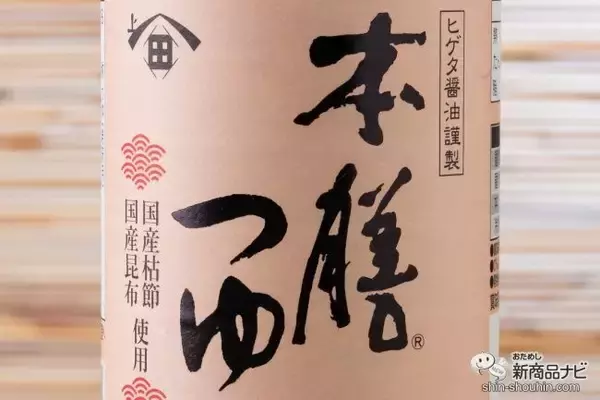 ヒゲタ醤油謹製
本膳
®
つゆ
上
田
国産枯節
国産昆布
使用
おためし
新商品ナビ
shin-shouhin.com